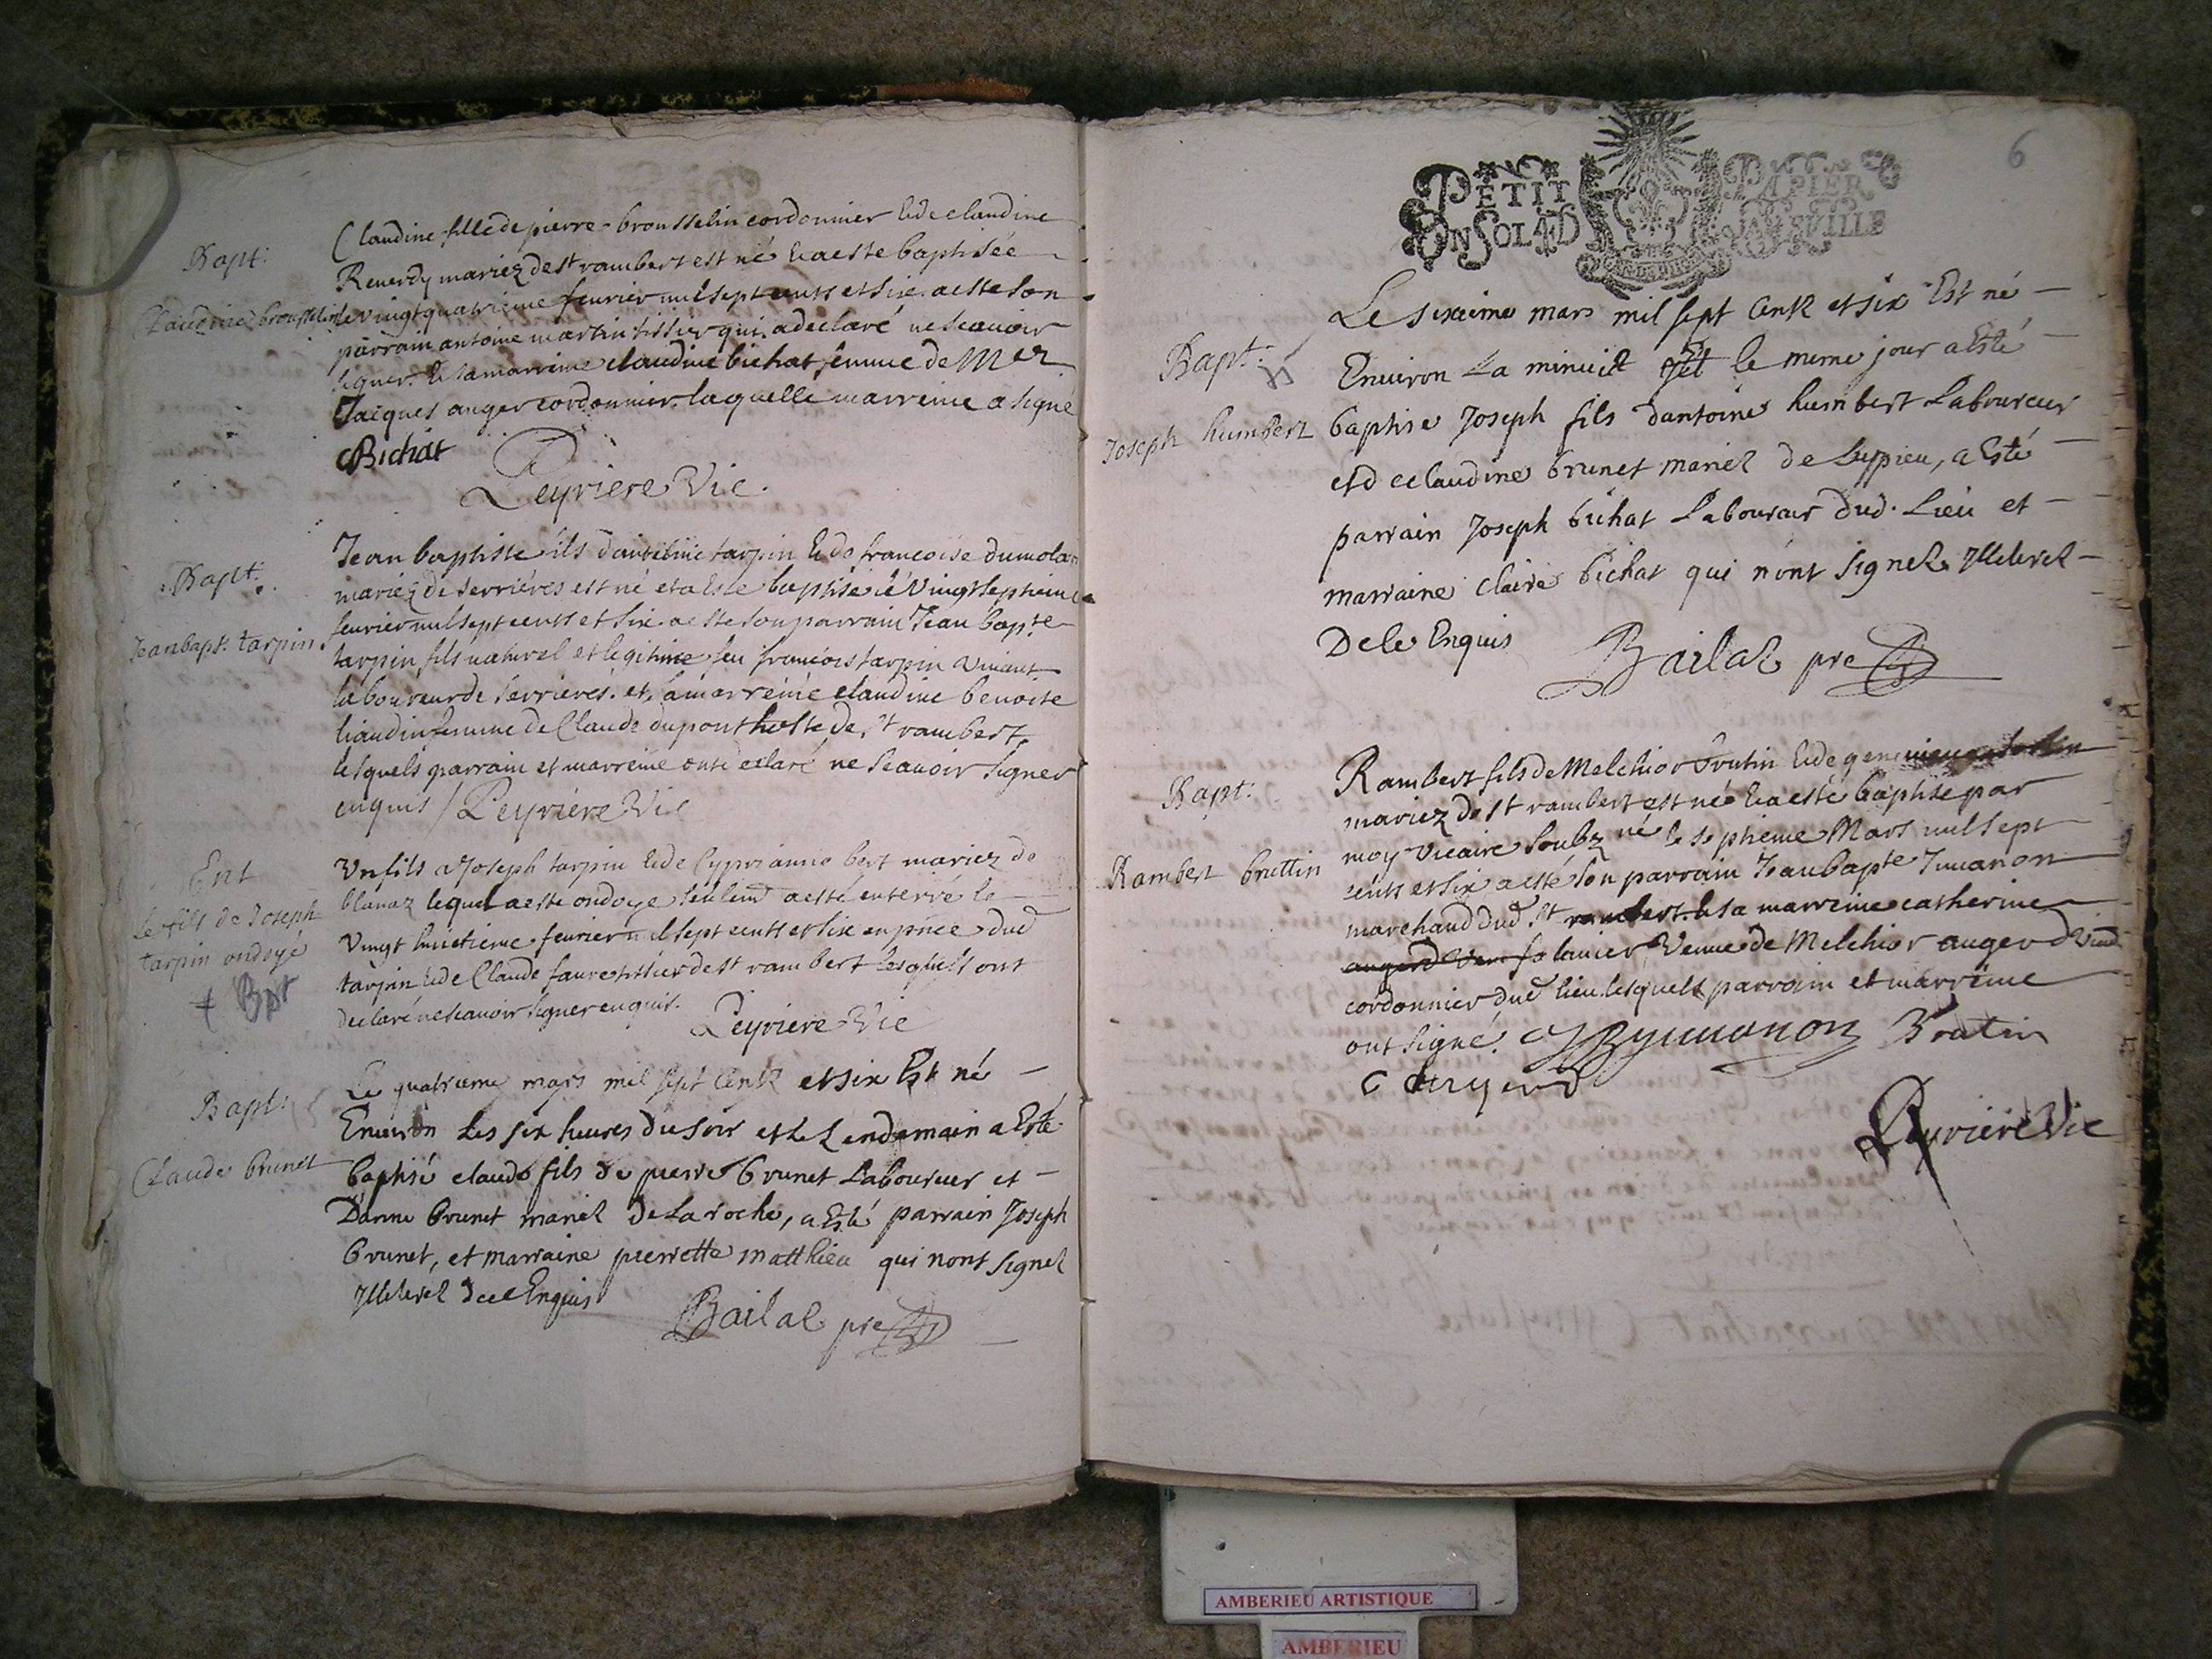 Bapt:
Claudine brousselin
Claudine fille de pierre brousselin cordonnier & de claudine
Reverdy mariez de st rambert est né & a este baptisée
le vingt quatrieme fevrier mil sept cents et six. a este son
parrain antoine martin tissier qui a declaré ne scavoir
signer. & sa marreine claudine bichat femme de Mre
Jacques auger cordonnier. laquelle marreine a signé
CBichat
Peyriere Vic.
Bapt:
Jean bapt: tarpin
Jean baptiste fils d'anthelme tarpin & de francoise dumolar
mariez de serrières est né et a este baptisé le vingt septieme
fevrier mil sept cents et six. a este son parrain Jean bapte
tarpin fils naturel et legitime feu francois tarpin vivant
laboureur de serrieres. et la marreine claudine benoite
femme de Claude dupont hoste de st rambert
lesquels parrain et marreine ont declaré ne scavoir signer
enquis / Peyriere Vic
Ent
le fils de Joseph
tarpin ondoyé
+ Bpt
Un fils a Joseph tarpin & de Cyprianne bert mariez de
blanaz lequel a este ondoye seulemt a esté enterré le
vingt huictieme fevrier mil sept cents et six en pnce dud
tarpin & de Claude faure tissier de st rambert lesquels ont
declaré ne scavoir signer enquis.
Peyriere Vic
Bapt:
Claude brunet
Le quatrieme mars mil sept centz et six Est né
Environ les six heures du soir et le Lendemain a Esté
baptisé claude fils de pierre brunet Laboureur et
Danne brunet mariez de La roche, a Esté parrain Joseph
brunet, et marraine pierrette matthieu qui nont signez
Illiterez dece Enquis
Bailat pre
6
PETIT PAPIER
UN SOL 4 D
Bapt:
Joseph humbert
Le sixaime mars mil sept centz et six Est né
Environ La minuit Et le meme jour a Esté
baptise Joseph fils dantoine humbert Laboureur
et de claudine brunet mariez de Luppieu, a Esté
parrain Joseph bichat Laboureur dud. Lieu et
marraine claire bichat qui nont signez Illiterez
De le Enquis
Bailat pre
Bapt:
Rambert bruttin
Rambert fils de Melchior brutin & de
mariez de st rambert est né & a esté baptisé par
moy vicaire soubzné le septieme Mars mil sept
cents et six a esté son parrain Jean bapte Juvanon
marchand dud. st rambert. & sa marreine catherine
folanier veuve de Melchior augerd vivt
cordonnier dud lieu. lesquels parrain et marreine
ont signé. JBJuvanon Brutin
C Augerd
Peyriere Vic
AMBERIEU ARTISTIQUE
AMBERIEU